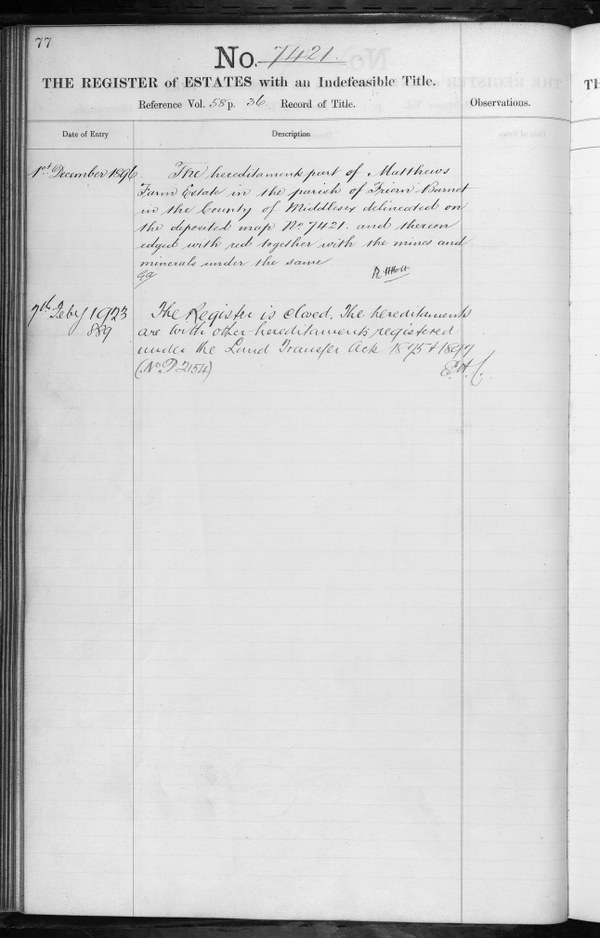 77
No. 7421.
THE REGISTER of ESTATES with an Indefeasible Title.
Reference Vol. 58 p. 36 Record of Title.
Observations.
Date of Entry
Description
1st December 1896.
The hereditaments part of Matthews
Farm Estate in the parish of Friern Barnet
in the County of Middlesex delineated on
the deposited map No 7421. and thereon
edged with red together with the mines and
minerals under the same
7th Feby 1923
889
The Register is closed. The hereditaments
are with other hereditaments registered
under the Land Transfer Acts 1875 & 1897
(No. P 2154)
E.H.C.